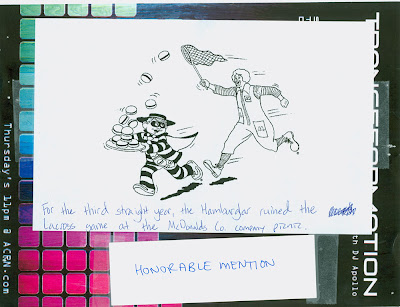 Thursday's 11pm @ ACRN.com
For the third straight year, the Hamburglar ruined the
Lacross game at the McDonalds Co. company picnic.
HONORABLE MENTION
TRANSFORMOTION
th DJ Apollo